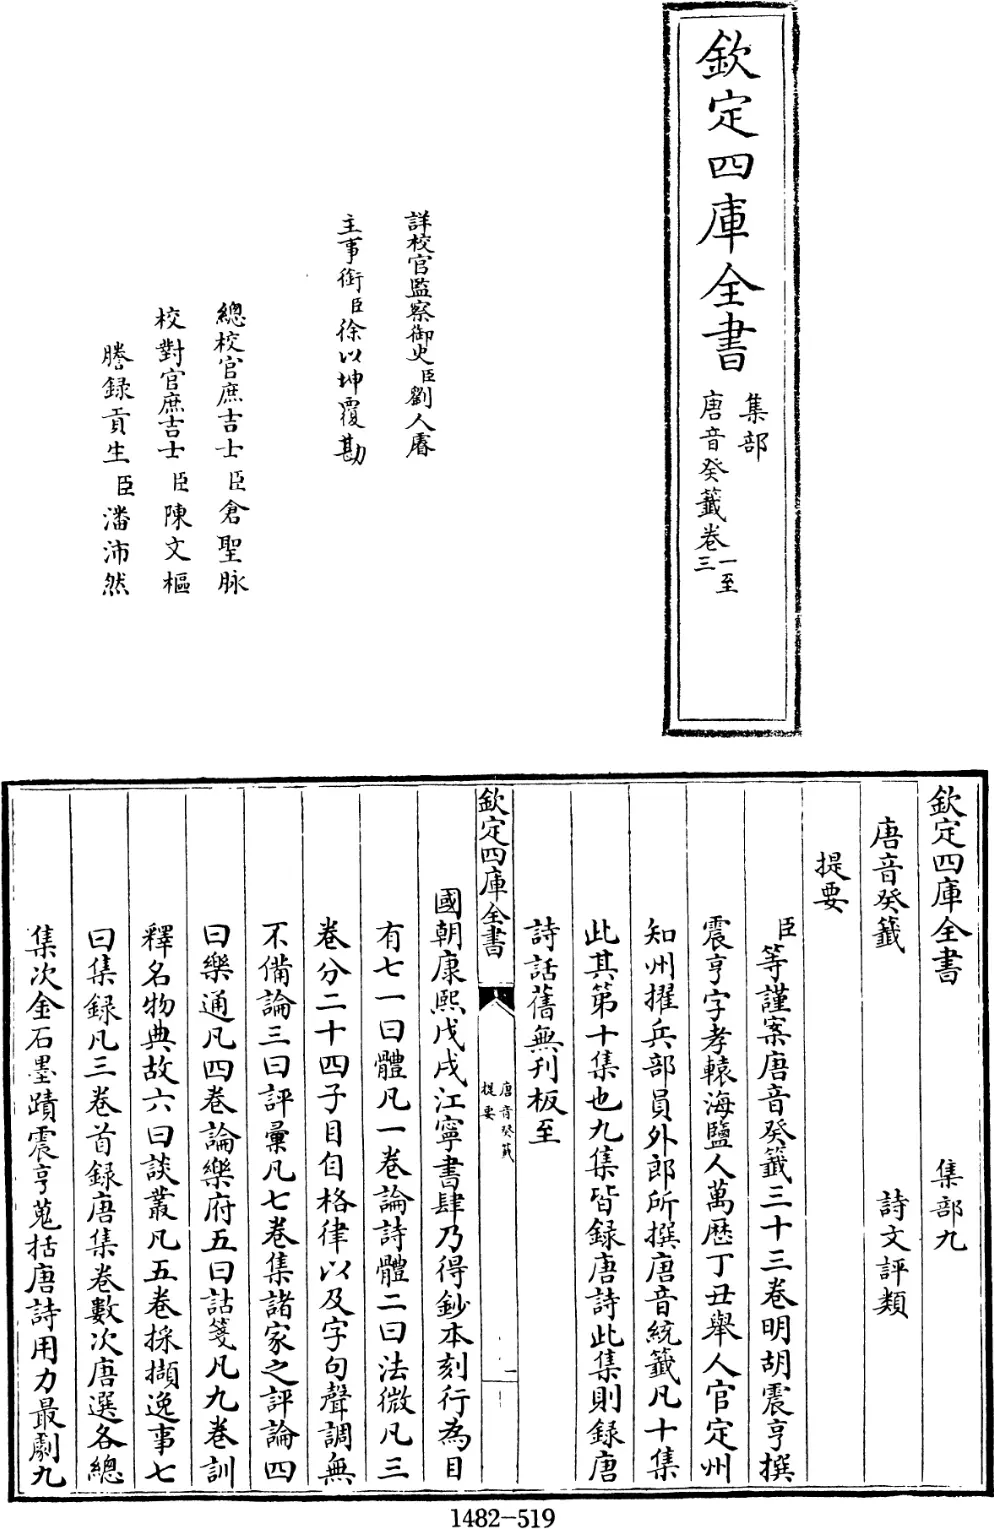 欽定四庫全書
集部
唐音癸籤卷一至三
詳校官監察御史臣劉人睿
主事銜臣徐以坤覆勘
總校官庶吉士臣倉聖脉
校對官庶吉士臣陳文樞
謄録貢生臣潘沛然
欽定四庫全書 集部九
唐音癸籤 詩文評類
提要
臣等謹案唐音癸籤三十三卷明胡震亨撰
震亨字孝轅海鹽人萬歷丁丑舉人官定州
知州擢兵部員外郎所撰唐音統籤凡十集
此其第十集也九集皆録唐詩此集則録唐
詩話舊無刋板至
欽定四庫全書
唐音癸籤
提要
一
國朝康熙戊戌江寧書肆乃得鈔本刻行為目
有七一曰體凡一卷論詩體二曰法微凡三
卷分二十四子目自格律以及字句聲調無
不備論三曰評彙凡七卷集諸家之評論四
曰樂通凡四卷論樂府五曰詁箋凡九卷訓
釋名物典故六曰談叢凡五卷採擷逸事七
曰集録凡三卷首録唐集卷數次唐選各總
集次金石墨蹟震亨蒐括唐詩用力最劇九
1482-519